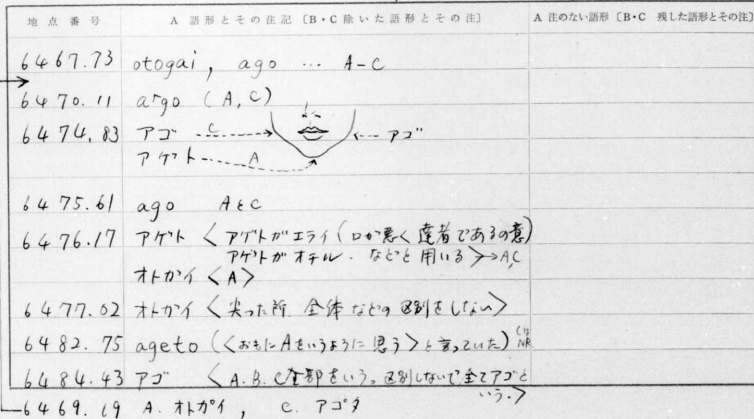 地点番号 A 語形とその注記〔B・C 除いた語形とその注〕 A 注のない語形〔B・C 残した語形とその注〕
6467.73 otogai, ago … A-C
6470.11 a⌈go (A, C)
6474.83 アゴ C アゴ
アケ゚ト A
6475.61 ago AとC
6476.17 アケ゚ト〈アケ゚トガエライ(口が悪く達者であるの意)
アケ゚トガオチル. などと用いる〉→A,C
オトガイ〈A〉
6477.02 オトガイ〈尖った所 全体などの区別をしない〉
6482.75 ageto (〈おもにAをいうように思う〉と言っていた) NR
6484.43 アゴ 〈A.B.C全部をいう。区別しないで全てアゴと
いう.〉
6469.69 A. オトガイ, C. アゴタ